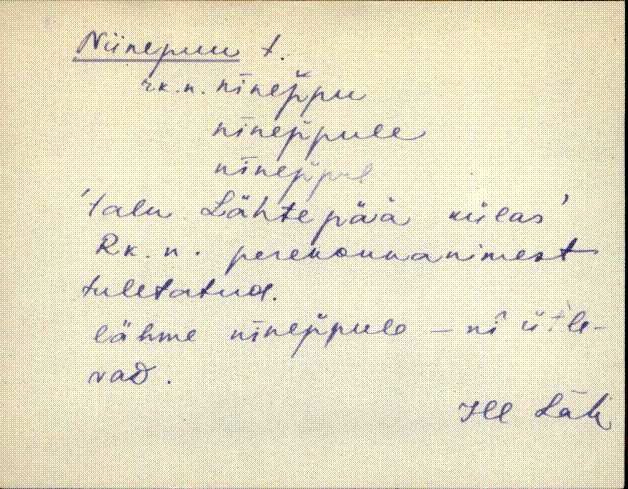 Niinepuu t.
rk.n. nīnep̆pu
nīnep̆pule
nīnep̆pul
'talu Lähtepää külas'
Rk. n. perekonnanimest
tuletatud.
lähme nīnep̆pule – nī ütle-
vad.